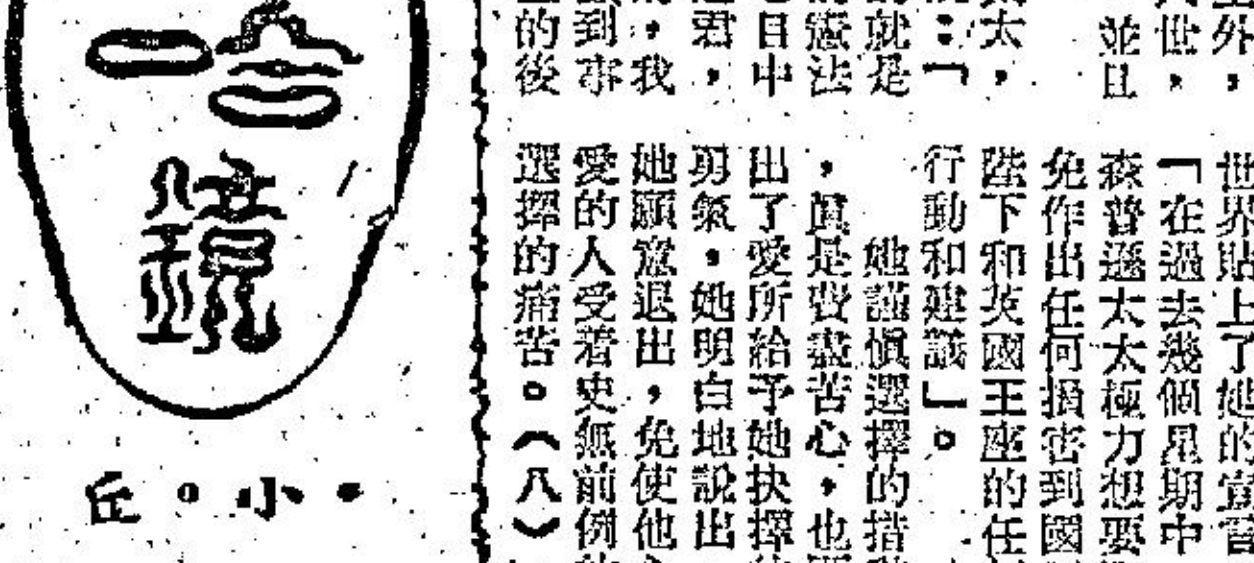 外，
世，
並且
太，
：「
就是
憲法
目中
君，
，我
到事
的後
世界貼上了她的宣言
「在過去幾個星期中
森普遜太太極力想要
免作出任何損害到國
陛下和英國王座的任
行動和建議」。
她謹慎選擇的措
，眞是費盡苦心，也
出了愛所給予她抉擇
勇氣。她明白地說出
她願意退出，免使他
愛的人受着史無前例
選擇的痛苦。（八）
哈鏡
・小。丘